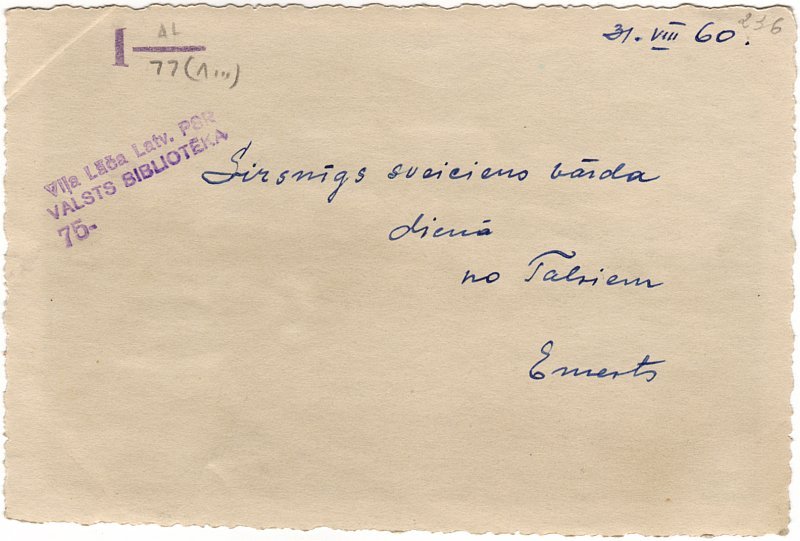 I AL
77(1...)
31. VIII 60.
236
Viļa Lāča Latv. PSR
VALSTS BIBLIOTĒKA
75-
Sirsnīgs sveiciens vārda
dienā
no Talsiem
Ernests